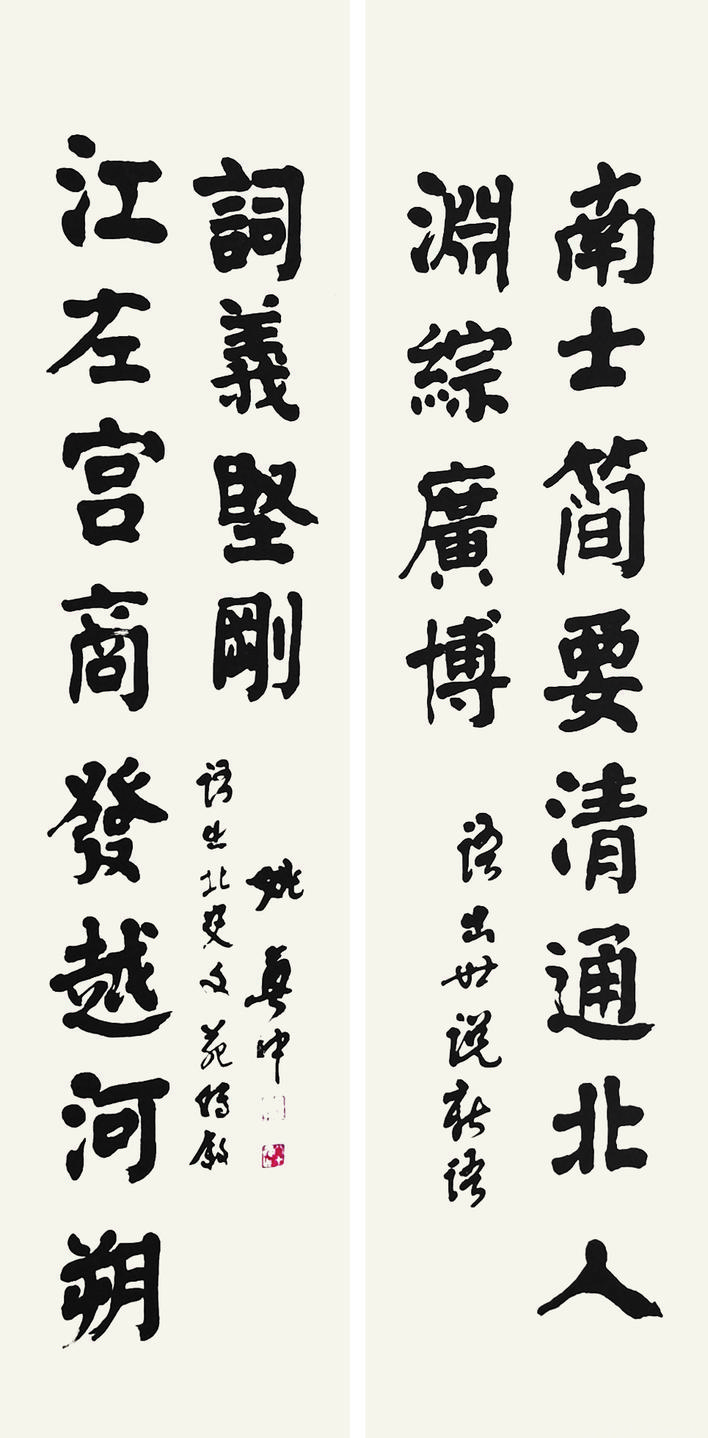 南士简要清通北人
淵綜廣博
語出世説新語
江左宫商發越河朔
詞義堅剛
語出北史文苑傳叙
姚奠中